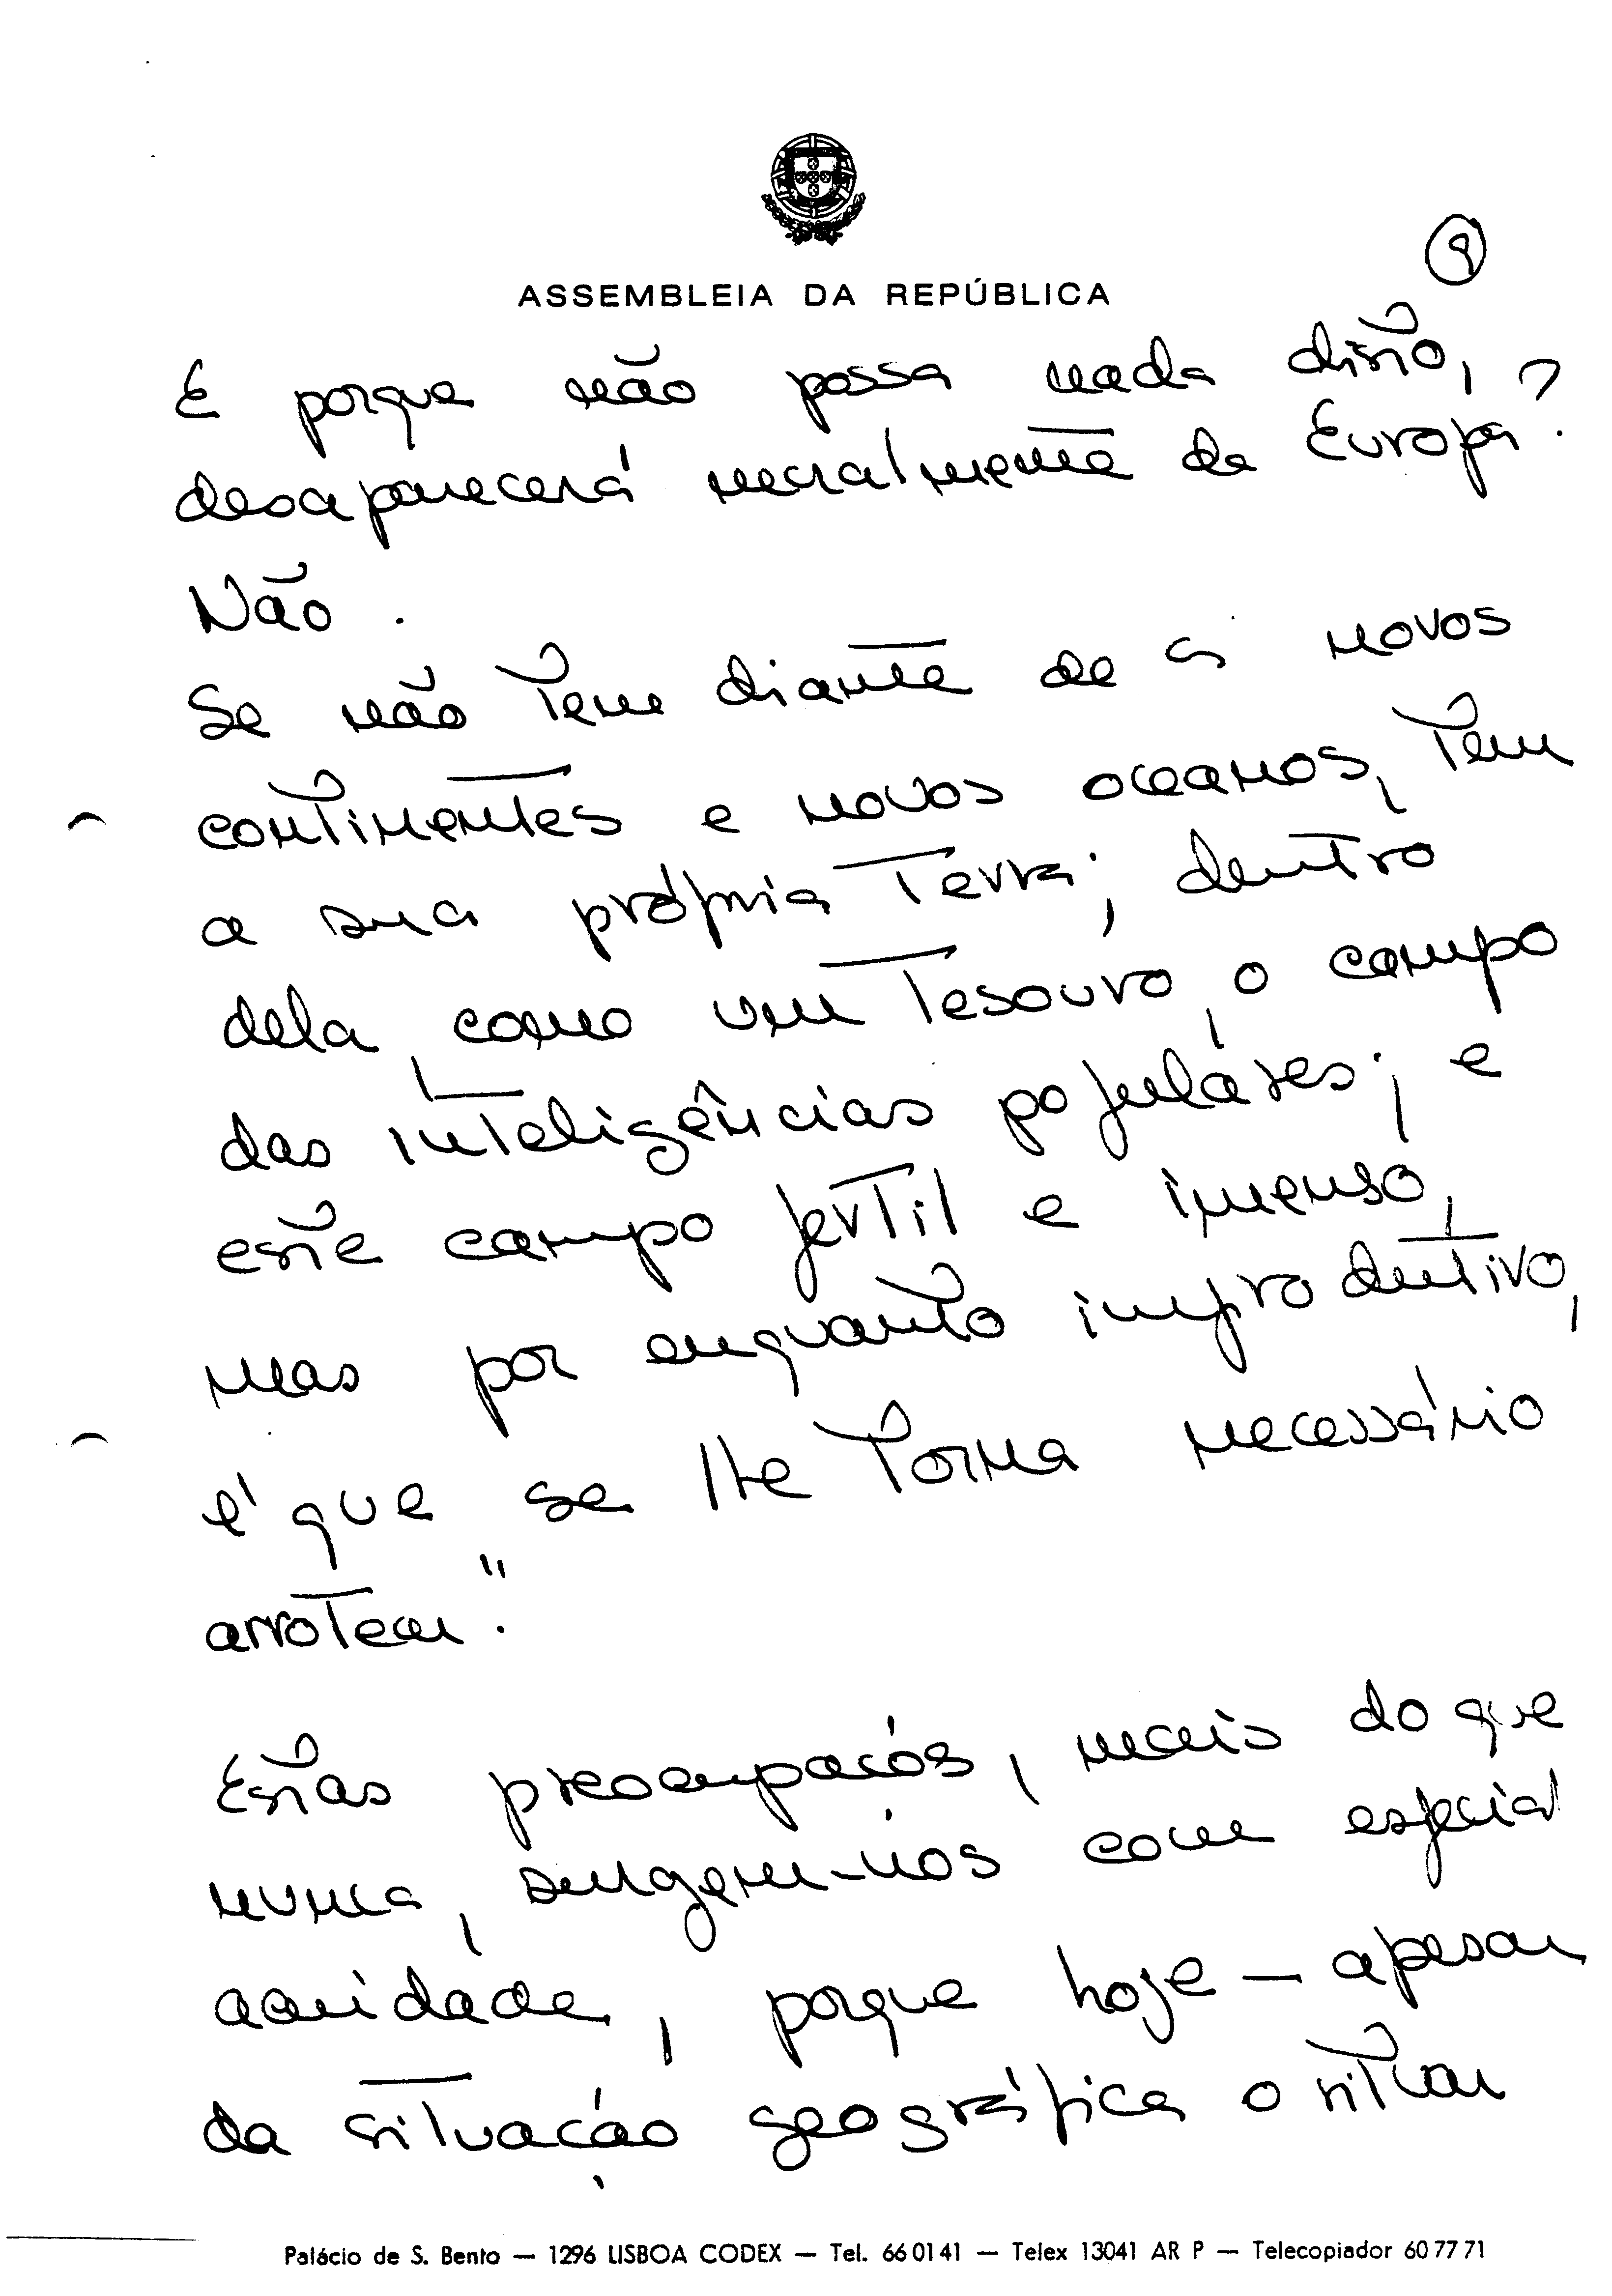 ASSEMBLEIA DA REPÚBLICA
9
E porque não possa nada disto,
desaparecerá moralmente da Europa?
Não.
Se não tem diante de si novos
continentes e novos oceanos, tem
a sua própria terra; dentro
dela, como um tesouro, o campo
das inteligências populares; e
este campo fértil e imenso,
mas por enquanto improdutivo,
é que se lhe torna necessário
arrotear".
Estas preocupações, mais do que
nunca, surgem-nos com especial
acuidade, porque hoje — apesar
da situação geográfica o situar
Palácio de S. Bento — 1296 LISBOA CODEX — Tel. 66 01 41 — Telex 13041 AR P — Telecopiador 60 77 71